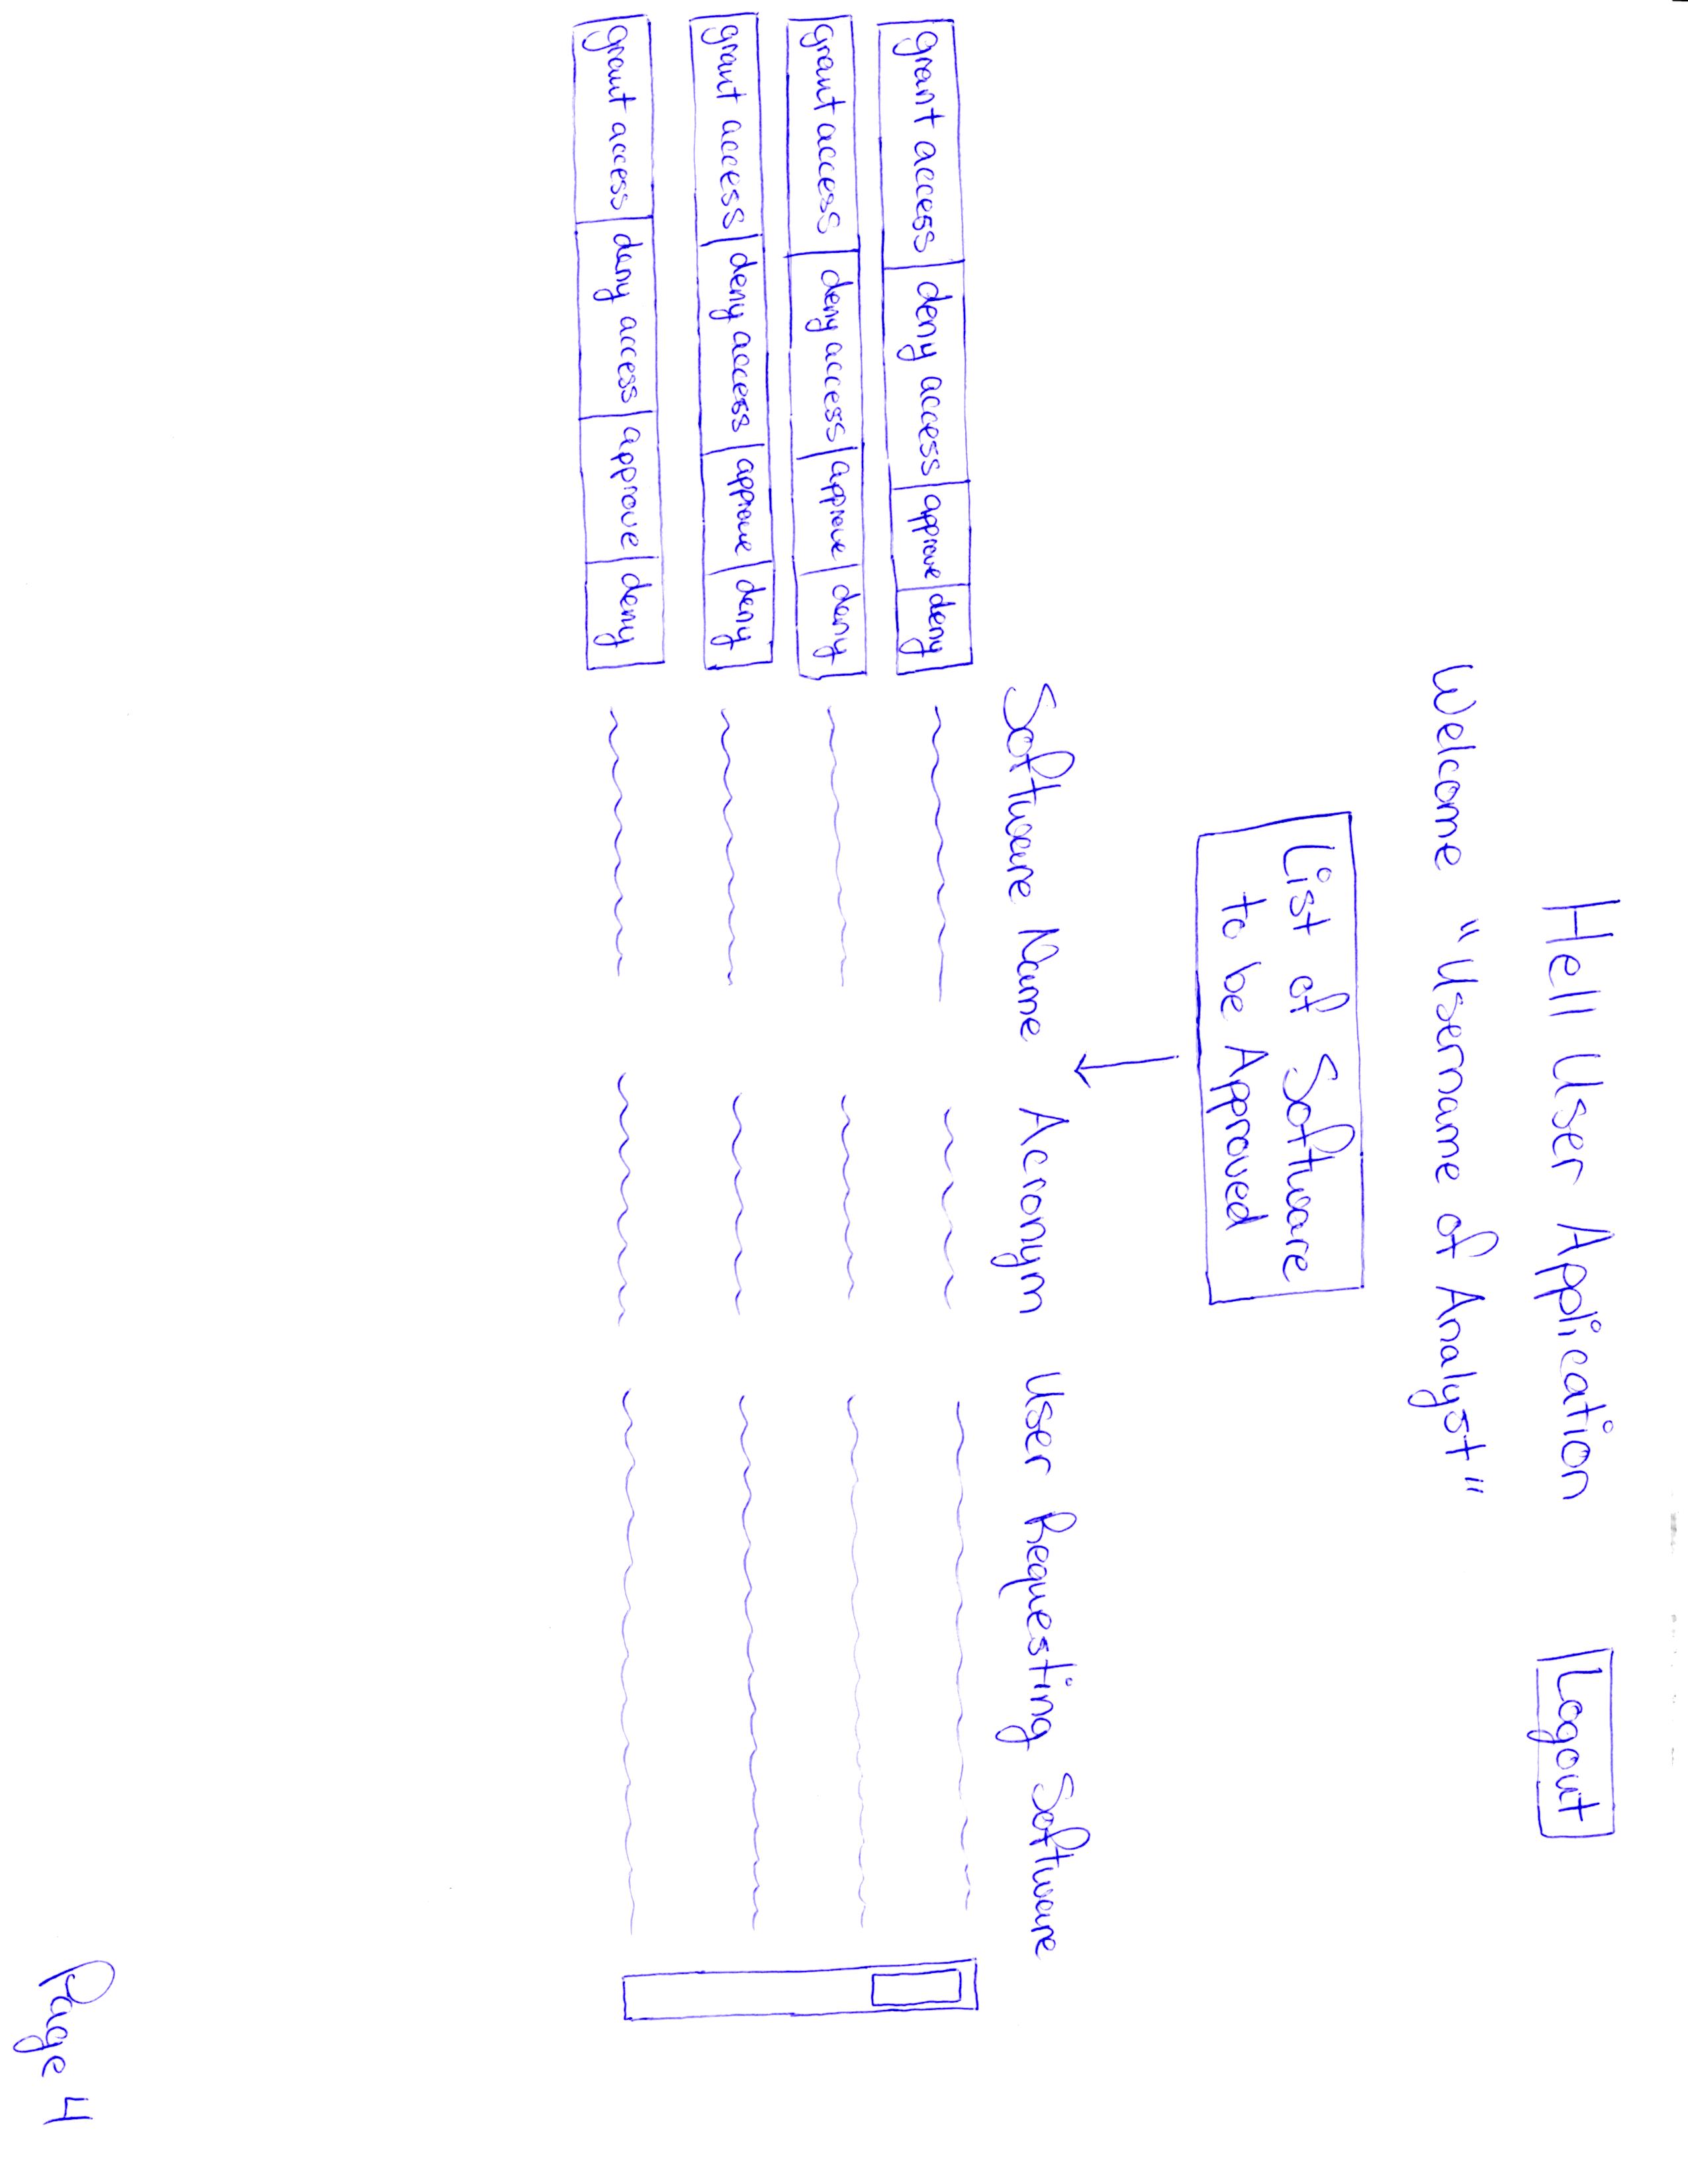 Hell User Application
Logout
Welcome "Username of Analyst"
List of Software
to be Approved
Software Name Acronym User Requesting Software
grant access deny access approve deny
grant access deny access approve deny
grant access deny access approve deny
grant access deny access approve deny
Page 4